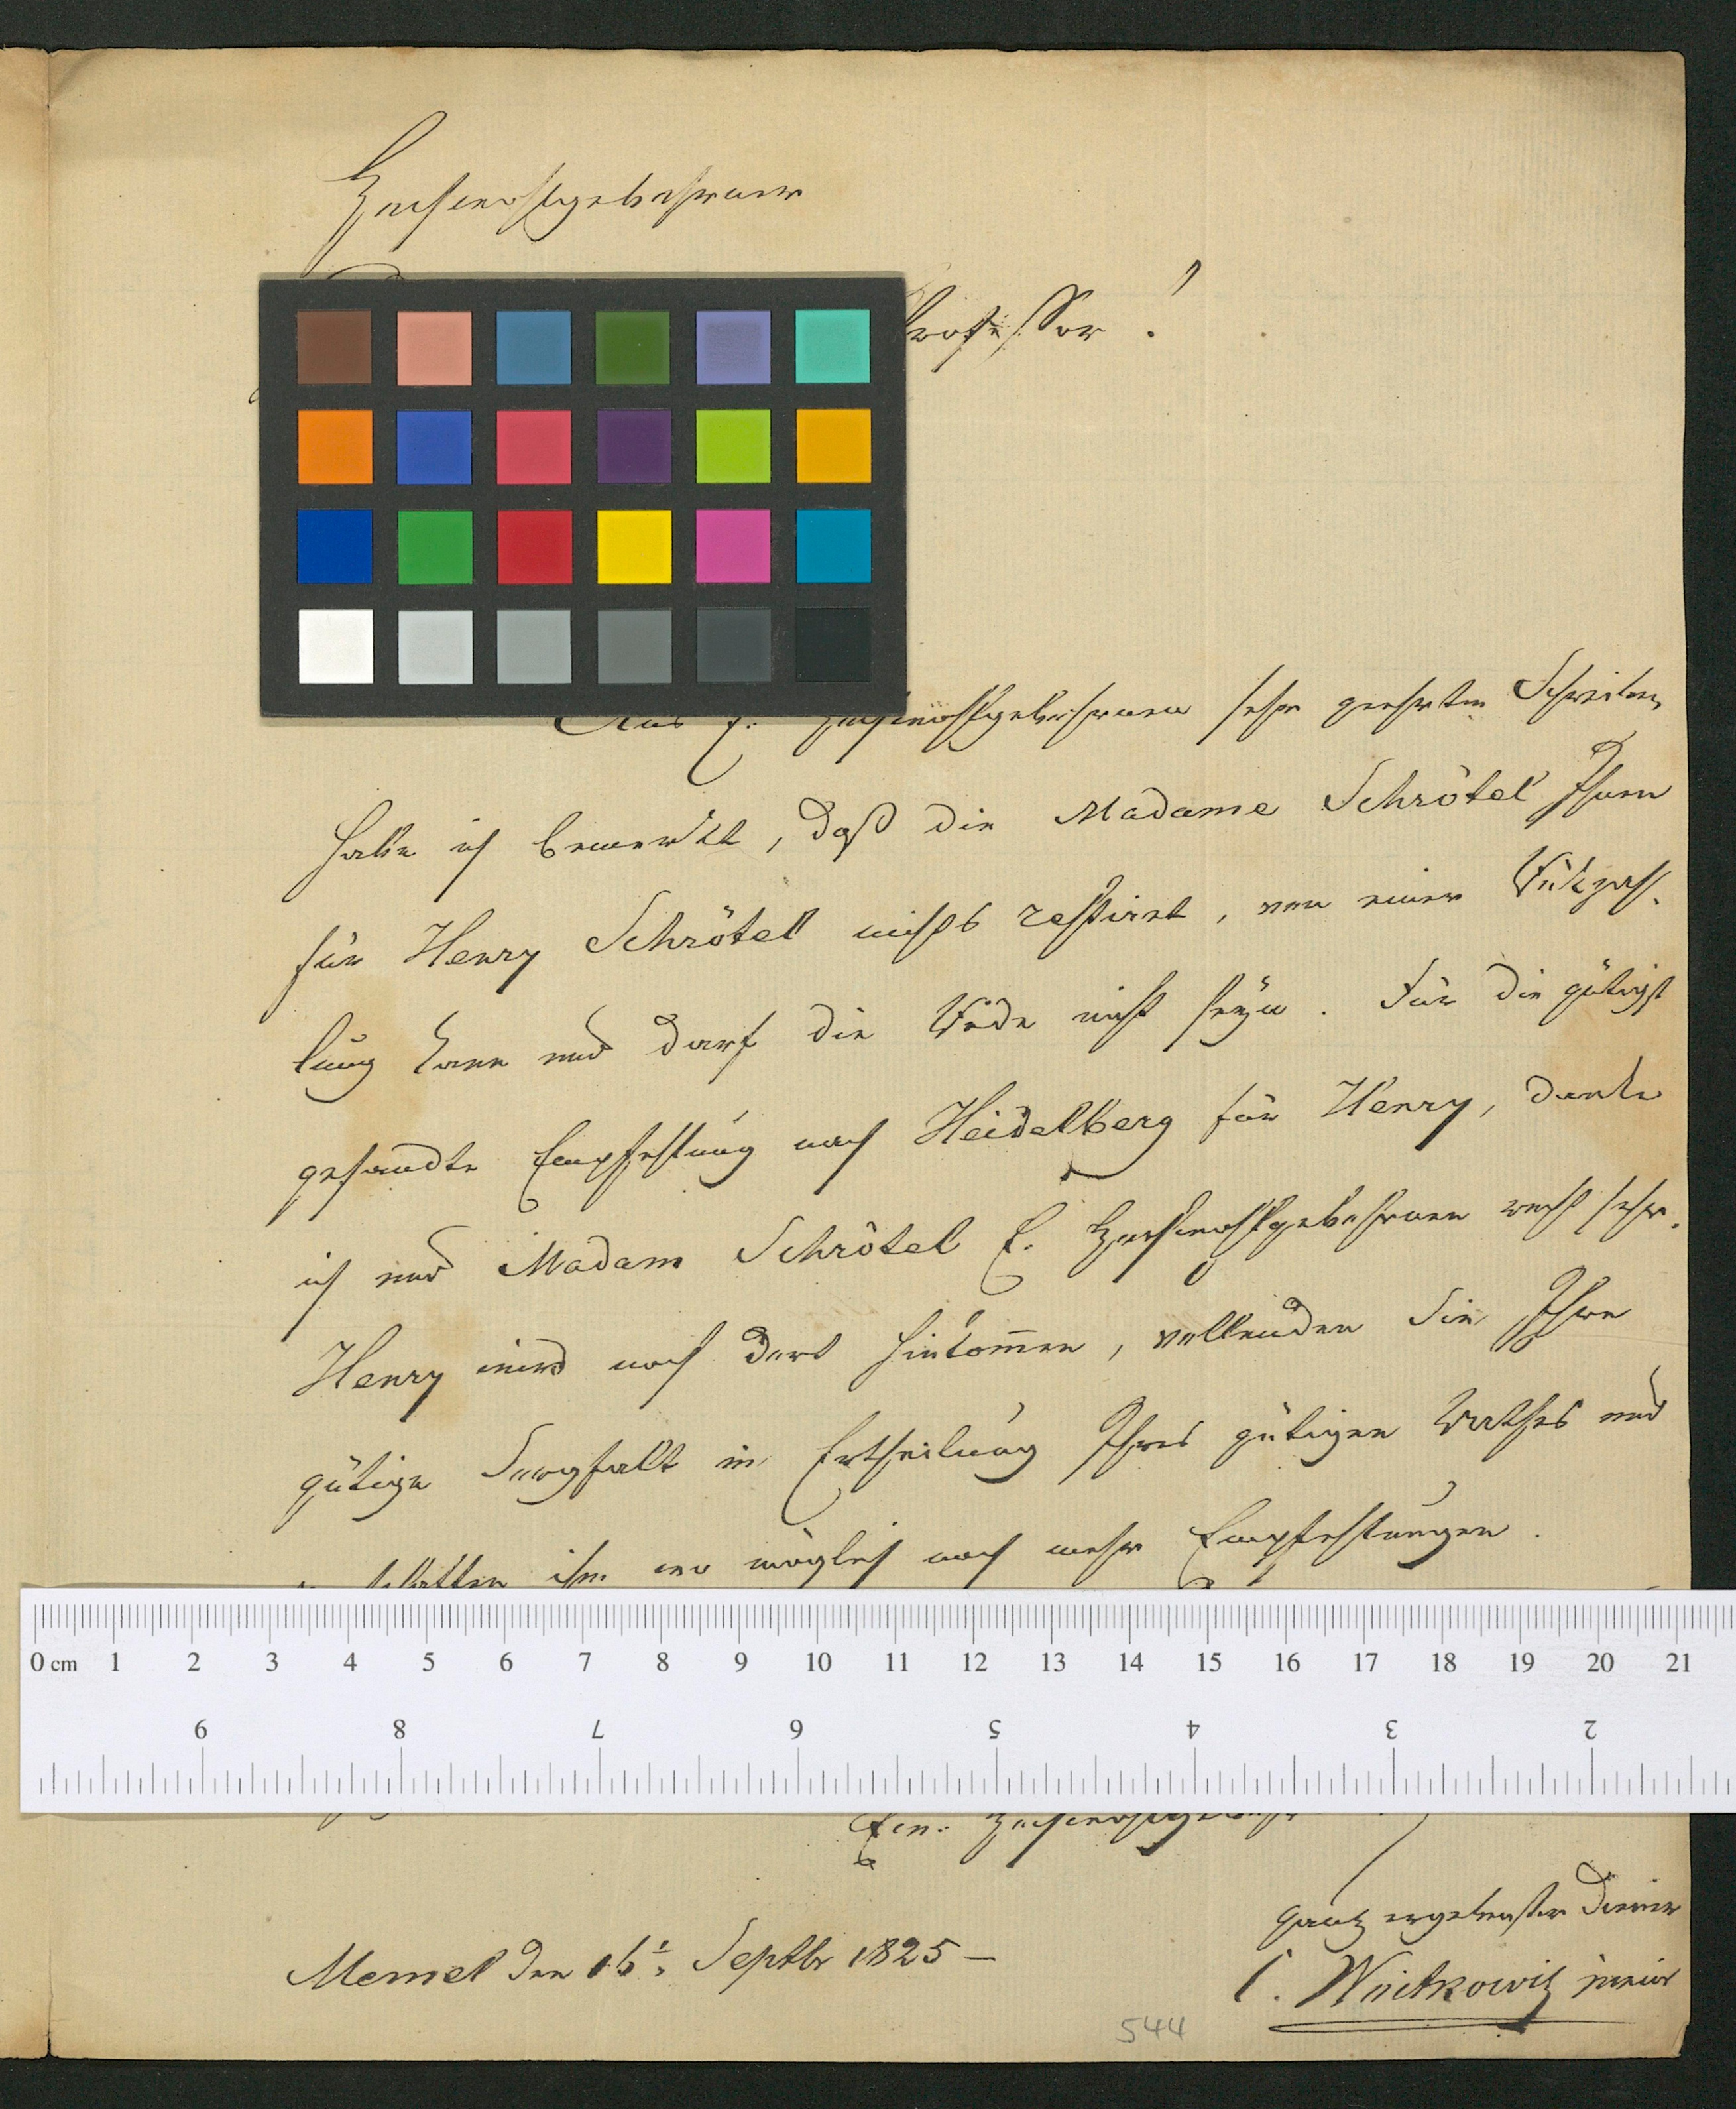 Hochwohlgebohrner
Professor!
Aus E. Hochwohlgebohrnen sehr geehrten Schreiben,
habe ich bemerkt, daß die Madame Schrötel Ihnen
für Henry Schrötel nichts restiret, von einer Rükzah-
lung kann und darf die Rede nicht seÿn. Für die gütigst
gesandte Empfehlung nach Heidelberg für Henry, danke
ich und Madam Schrötel E. Hochwohlgebohrnen recht sehr.
Henry wird nach dort hinkom̄en, vollenden Sie Ihre
gütige Sorgfalt in Ertheilung Ihres gütigen Rathes und
ihm wo möglich noch mehr Empfehlungen.
0 cm 1 2 3 4 5 6 7 8 9 10 11 12 13 14 15 16 17 18 19 20 21
9 8 7 6 5 4 3 2
Ew.
ganz ergebenster Diener
Memel den 16t. Septbr 1825 –
C. Witkowitz junior
544